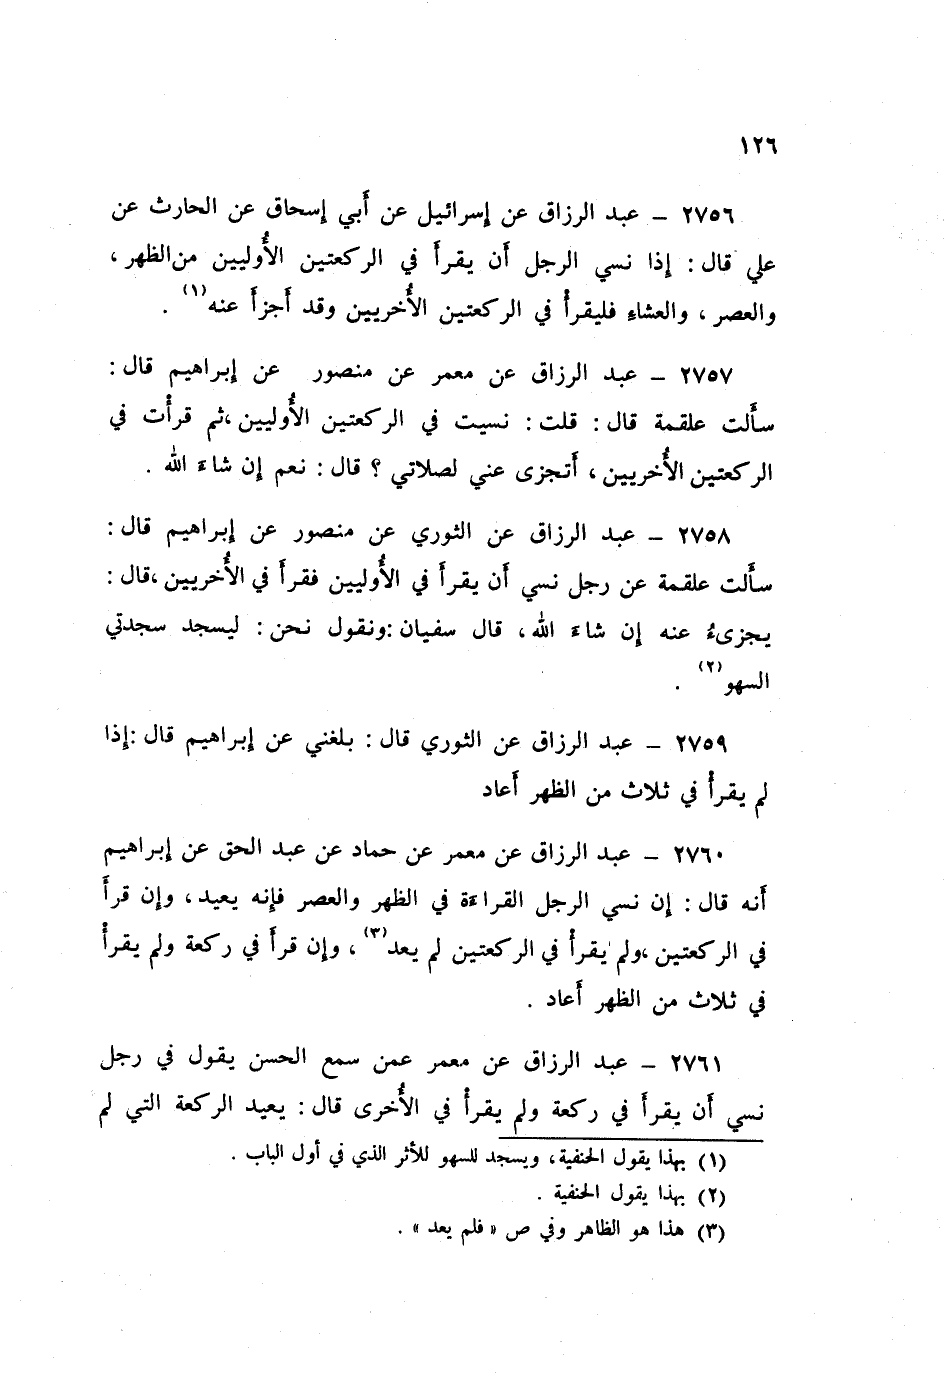 ١٢٦
٢٧٥٦ – عبد الرزاق عن إسرائيل عن أبي إسحاق عن الحارث عن
علي قال : إذا نسي الرجل أن يقرأ في الركعتين الأُوليين من الظهر ،
والعصر ، والعشاءِ فليقرأْ في الركعتين الأُخريين وقد أَجزأَ عنه(١) .
٢٧٥٧ – عبد الرزاق عن معمر عن منصور عن إبراهيم قال :
سأَلت علقمة قال : قلت : نسيت في الركعتين الأُوليين ،ثم قرأْت في
الركعتين الأُخريين ، أَتجزى عني لصلاتي ؟ قال : نعم إن شاءَ الله .
٢٧٥٨ – عبد الرزاق عن الثوري عن منصور عن إبراهيم قال :
سأَلت علقمة عن رجل نسي أَن يقرأَ في الأُوليين فقرأَ في الأُخريين ،قال :
يجزىءُ عنه إن شاءَ الله ، قال سفيان :ونقول نحن : ليسجد سجدتي
السهو(٢) .
٢٧٥٩ – عبد الرزاق عن الثوري قال : بلغني عن إبراهيم قال :إذا
لم يقرأْ في ثلاث من الظهر أَعاد
٢٧٦٠ – عبد الرزاق عن معمر عن حماد عن عبد الحق عن إبراهيم
أَنه قال : إن نسي الرجل القراءَة في الظهر والعصر فإنه يعيد ، وإن قرأَ
في الركعتين ،ولم يقرأْ في الركعتين لم يعد(٣) ، وإن قرأَ في ركعة ولم يقرأْ
في ثلاث من الظهر أَعاد .
٢٧٦١ – عبد الرزاق عن معمر عمن سمع الحسن يقول في رجل
نسي أَن يقرأَ في ركعة ولم يقرأْ في الأُخرى قال : يعيد الركعة التي لم
(١) بهذا يقول الحنفية ، ويسجد للسهو للأثر الذي في أول الباب .
(٢) بهذا يقول الحنفية .
(٣) هذا هو الظاهر وفي ص « فلم يعد » .